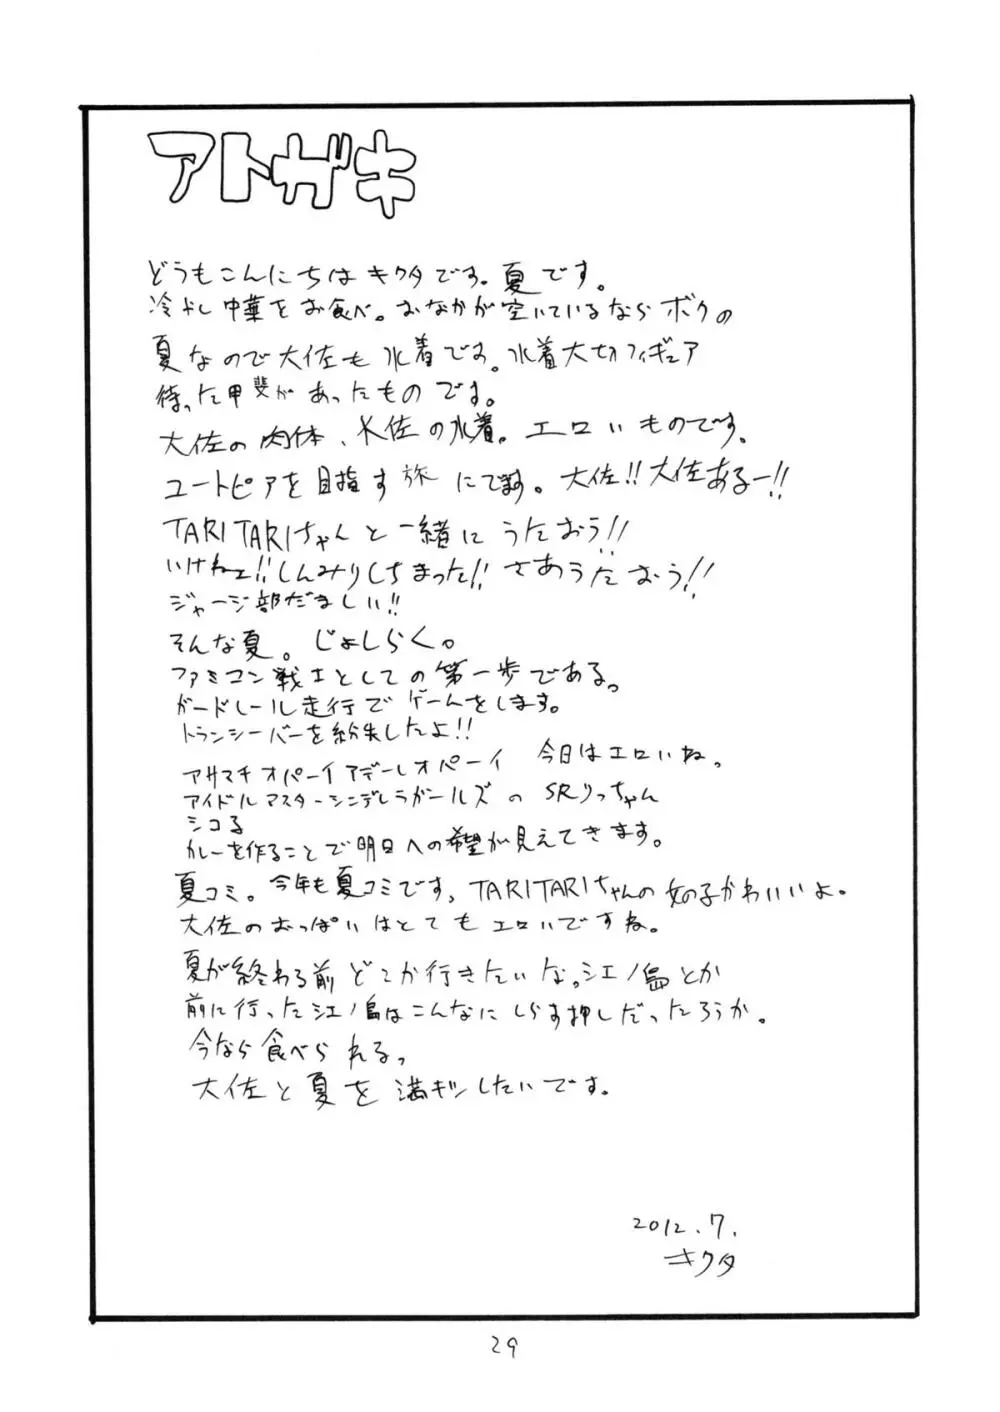 アトガキ
どうもこんにちはキクタです。夏です。
冷やし中華をお食べ。おなかが空いているならボクの
夏なので大佐も水着です。水着大切フィギュア
待った甲斐があったものです。
大佐の肉体、大佐の水着。エロいものです。
ユートピアを目指す旅にでます。大佐!!大佐あるー!!
TARITARIちゃんと一緒にうたおう!!
いけねェ!!しんみりしちまった!!さあうたおう!!
ジャージ部だましい!!
そんな夏。じょしらく。
ファミコン戦士としての第一歩である。
ガードレール走行でゲームをします。
トランシーバーを紛失したよ!!
アサマキオパーイアデールオパーイ 今日はエロいね。
アイドルマスターシンデレラガールズのSRりっちゃん
シコる
カレーを作ることで明日への希望が見えてきます。
夏コミ。今年も夏コミです、TARITARIちゃんの女の子かわいいよ。
大佐のおっぱいはとてもエロいですね。
夏が終わる前どこか行きたいな。江ノ島とか
前に行った江ノ島はこんなにしらす押しだったろうか。
今なら食べられる。
大佐と夏を満ギツしたいです。
2012.7.
キクタ
29